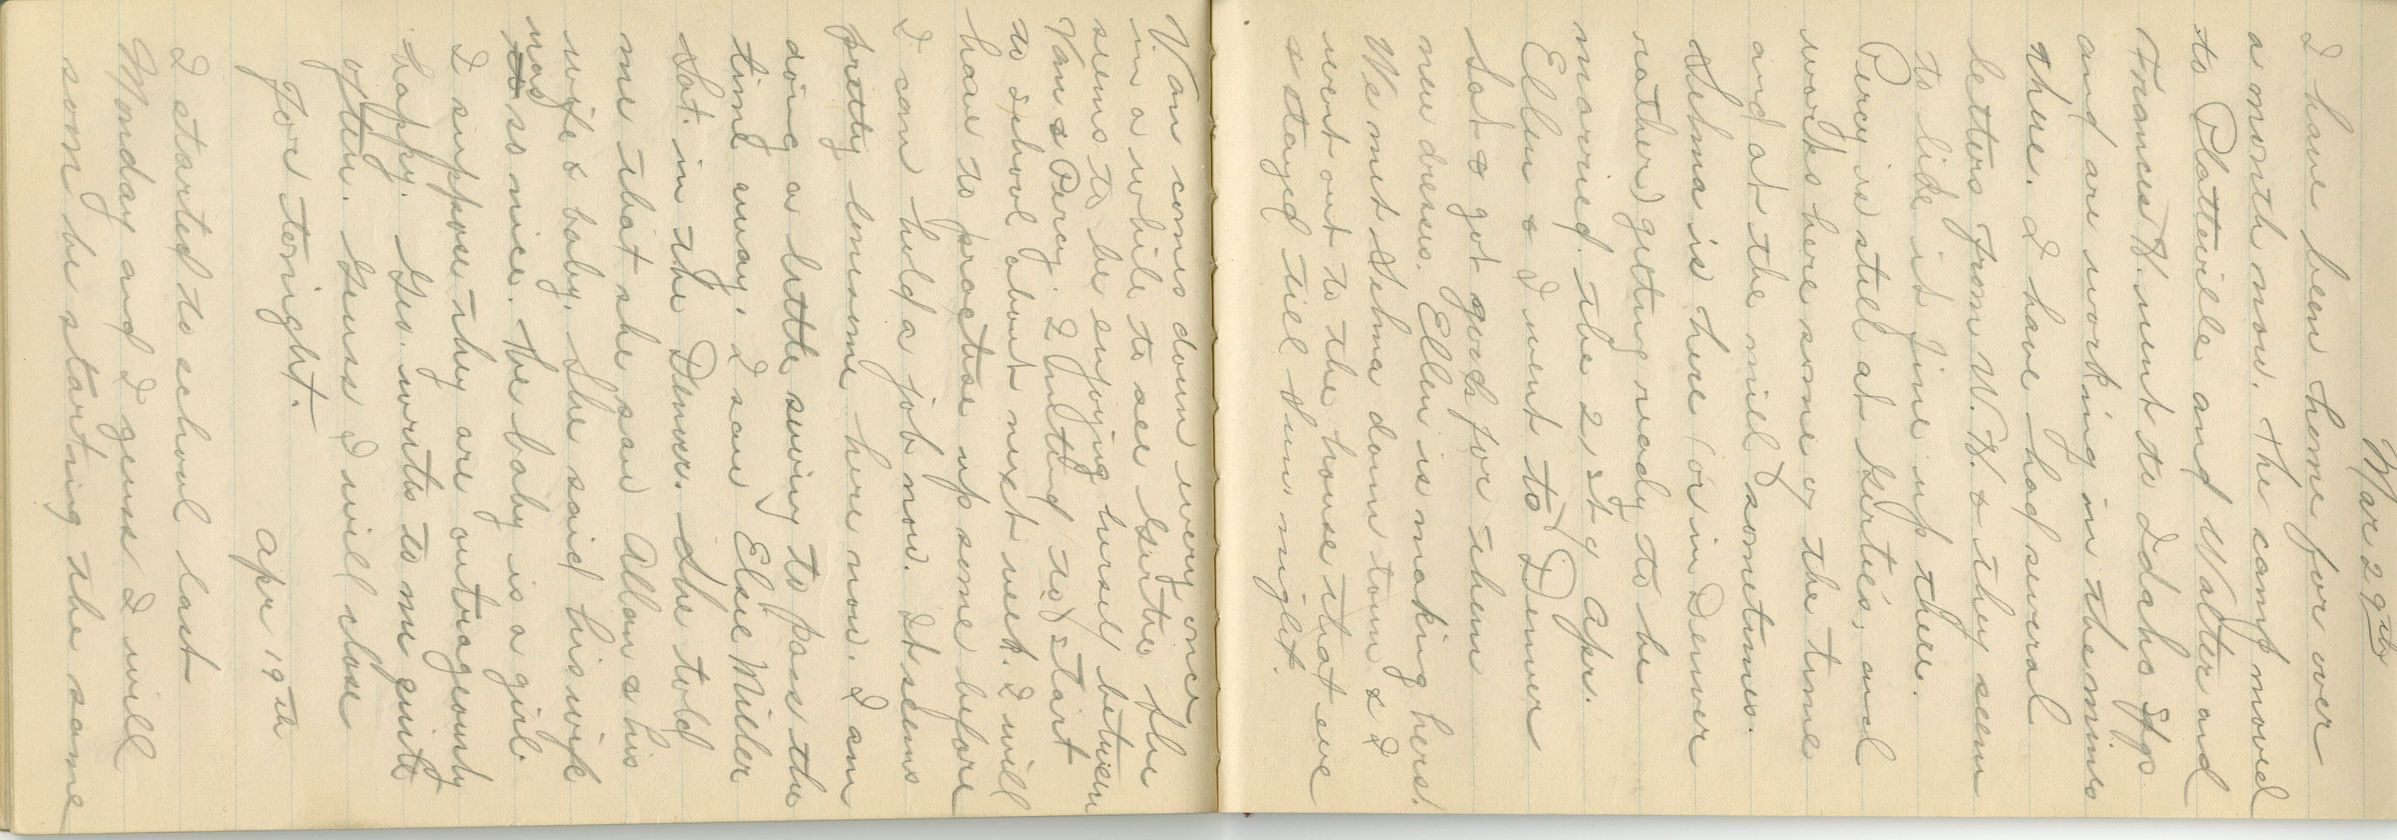 Mar 29th
I have been home for over
a month now. The camp moved
to Platteville and Walter and
Frances H. went to Idaho Spgs
and are working in the mines
there. I have had several
letters from W. H. & they seem
to like it fine up there.
Percy is still at Gertie's, and
works here some of the time
and at the mill sometimes.
Selma is here (or in Denver
rather) getting ready to be
married the 21st of Apr.
Ellen & I went to Denver
Sat & got goods for them
new dresses. Ellen is making hers.
We met Selma down town & I
went out to the house that eve
& stayed till Sun. night.
Van comes down every once
in a while to see Gertie. She
seems to be enjoying herself between
Van & Percy. I intend to start
to school about next week. I will
have to practise up some before
I can hold a job now. It seems
pretty lonesome here now. I am
doing a little sewing to pass the
time away. I saw Elsie Miller
Sat. in the Denver. She told
me that she saw Allan & his
wife & baby. She said his wife
was
to so nice. The baby is a girl.
I suppose they are outrageously
happy. Geo. writes to me quite
often. Guess I will close
for tonight.
Apr 19th
I started to school last
Monday and I guess I will
soon be starting the same